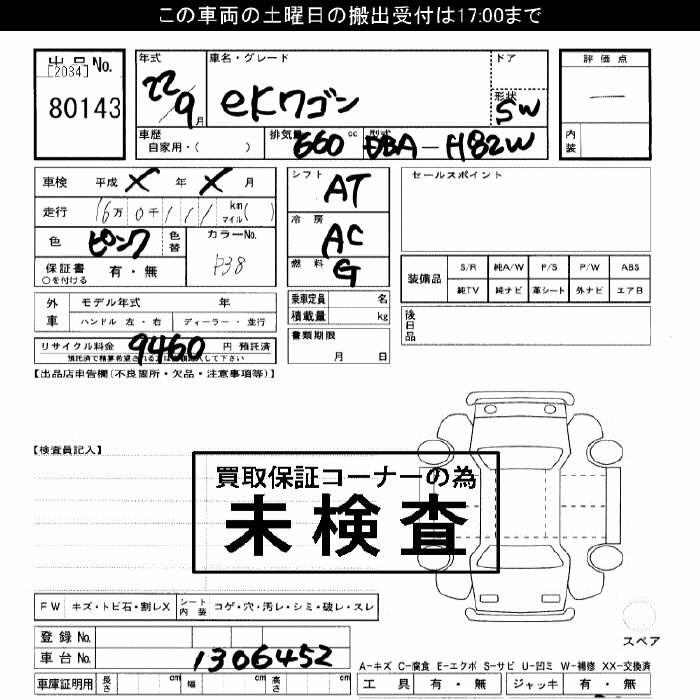 この車両の土曜日の搬出受付は17:00まで
出品No.
[2034]
80143
年式
22
9月
車名・グレード
eKワゴン
ドア
形状
SW
評価点
―
内装
車歴
自家用・( )
排気量 660 cc
型式 DBA-H82W
車検 平成 X 年 X 月
走行 16万 0千 111 km マイル( )
色 ピンク
色替
カラーNo.
P38
保証書
○を付ける
有・無
シフト AT
冷房 AC
燃料 G
セールスポイント
装備品
S/R 純A/W P/S P/W ABS
純TV 純ナビ 革シート 外ナビ エアB
外車
モデル年式 年
ハンドル 左・右 ディーラー・並行
乗車定員 名
積載量 kg
後日品
リサイクル料金 9460 円 預託済
書類期限
月 日
【出品店申告欄(不良箇所・欠品・注意事項等)】
【検査員記入】
買取保証コーナーの為
未検査
FW キズ・トビ石・割レX
シート内装 コゲ・穴・汚レ・シミ・破レ・スレ
登録No.
車台No. 1306452
スペア
A-キズ C-腐食 E-エクボ S-サビ U-凹ミ W-補修 XX-交換済
車庫証明用 長さ cm 幅 cm 高さ cm
工具 有・無 ジャッキ 有・無